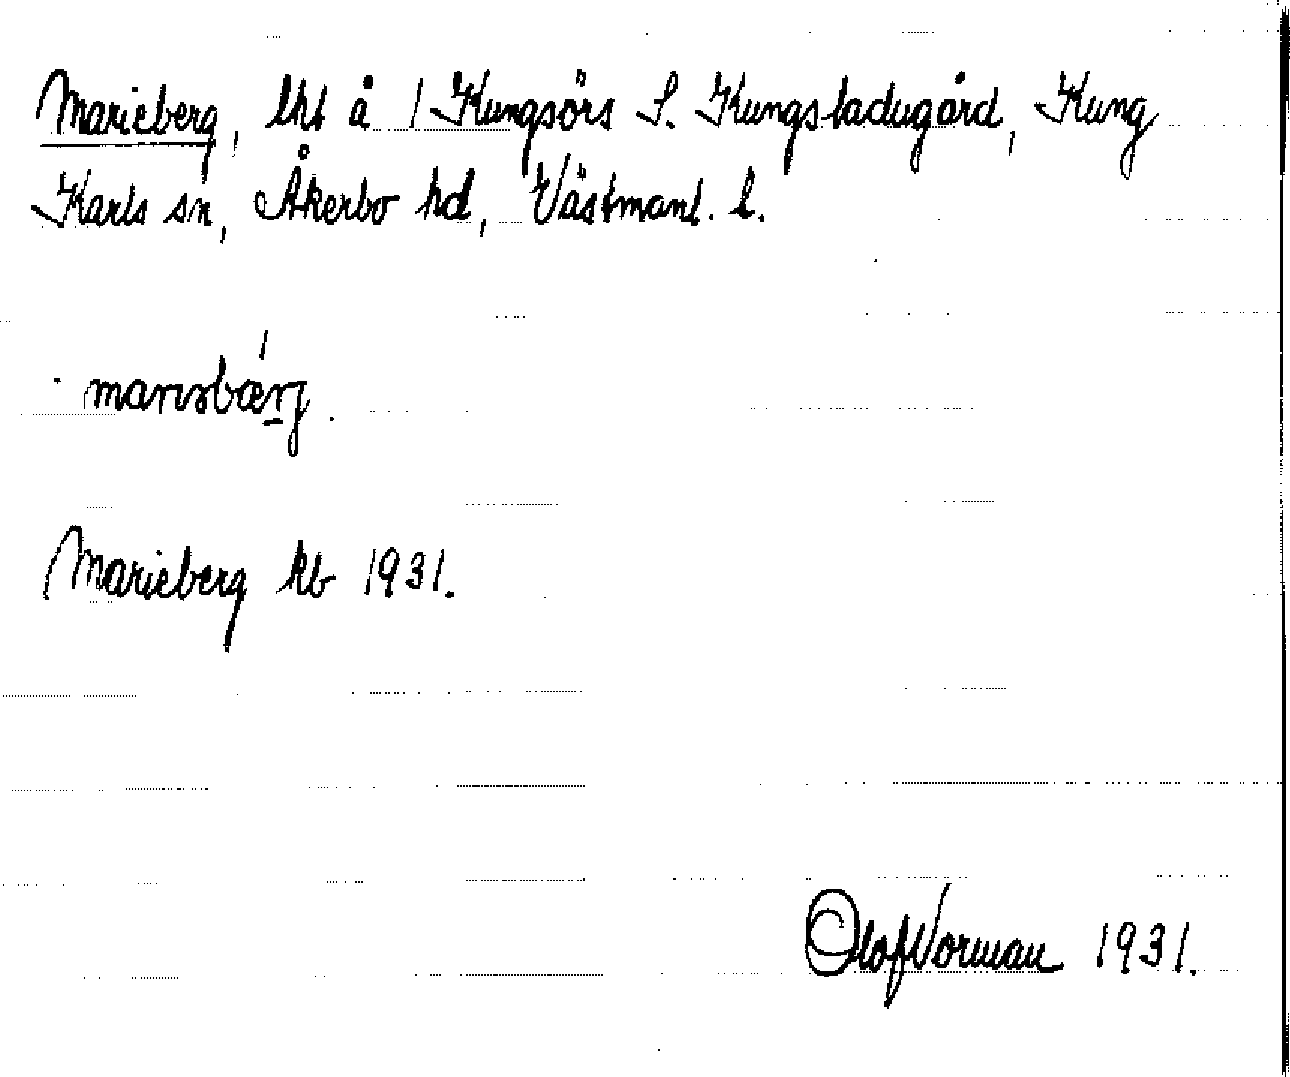 Marieberg, lht å 1 Kungsörs S. Kungsladugård, Kung
Karls sn, Åkerbo hd, Västmanl. l.
marisbærj.
Marieberg kb 1931.
Olof Norman 1931.